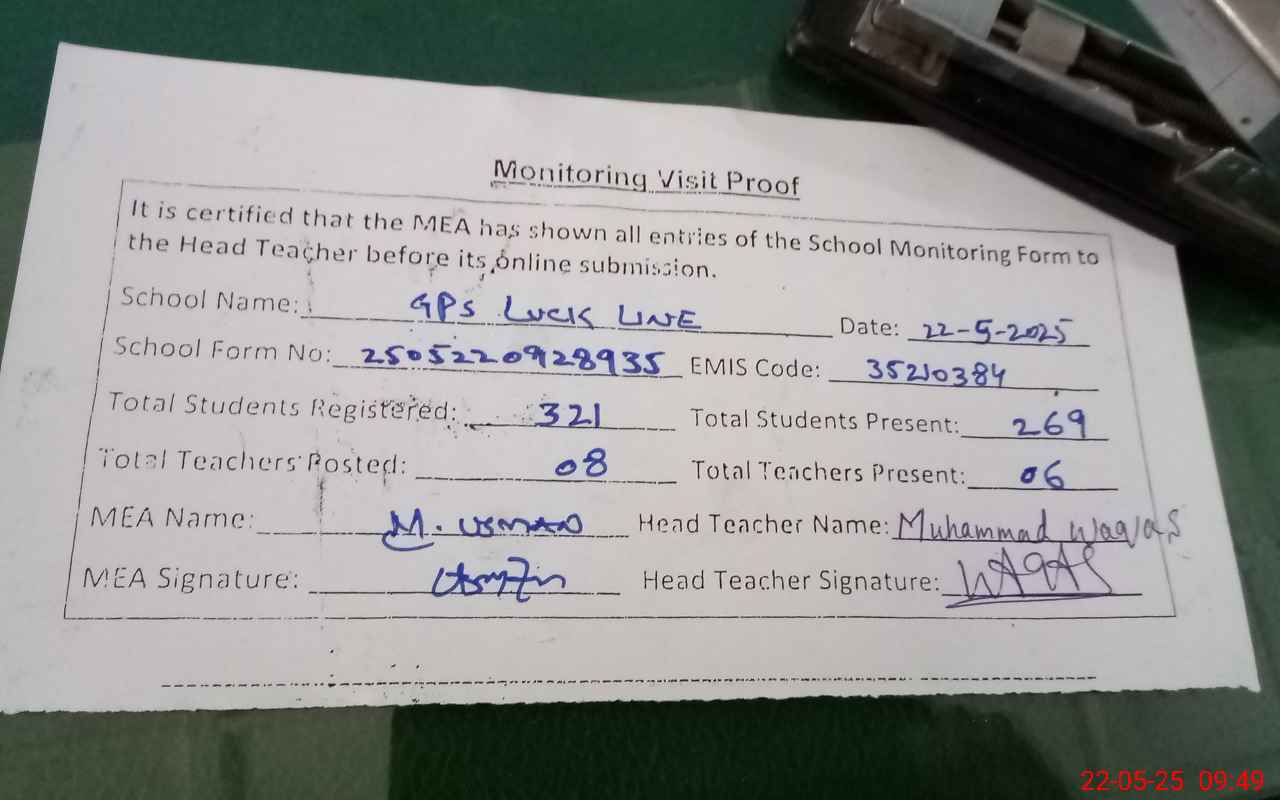 Monitoring Visit Proof
It is certified that the MEA has shown all entries of the School Monitoring Form to
the Head Teacher before its online submission.
School Name: GPS LUCK LINE Date: 22-5-2025
School Form No: 2505220928935 EMIS Code: 35210384
Total Students Registered: 321 Total Students Present: 269
Total Teachers Posted: 08 Total Teachers Present: 06
MEA Name: M. USMAN Head Teacher Name: Muhammad Waqas
MEA Signature: Usman Head Teacher Signature: WAQAS
22-05-25 09:49